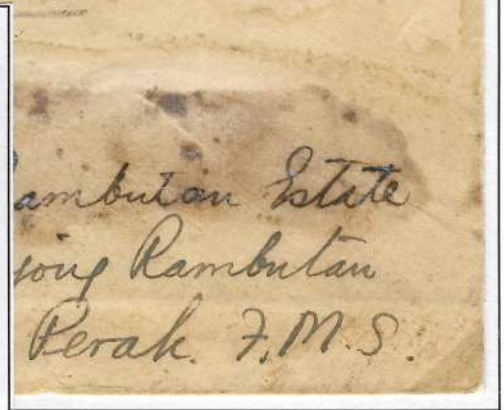 Rambutan Estate
jong Rambutan
Perak. F.M.S.